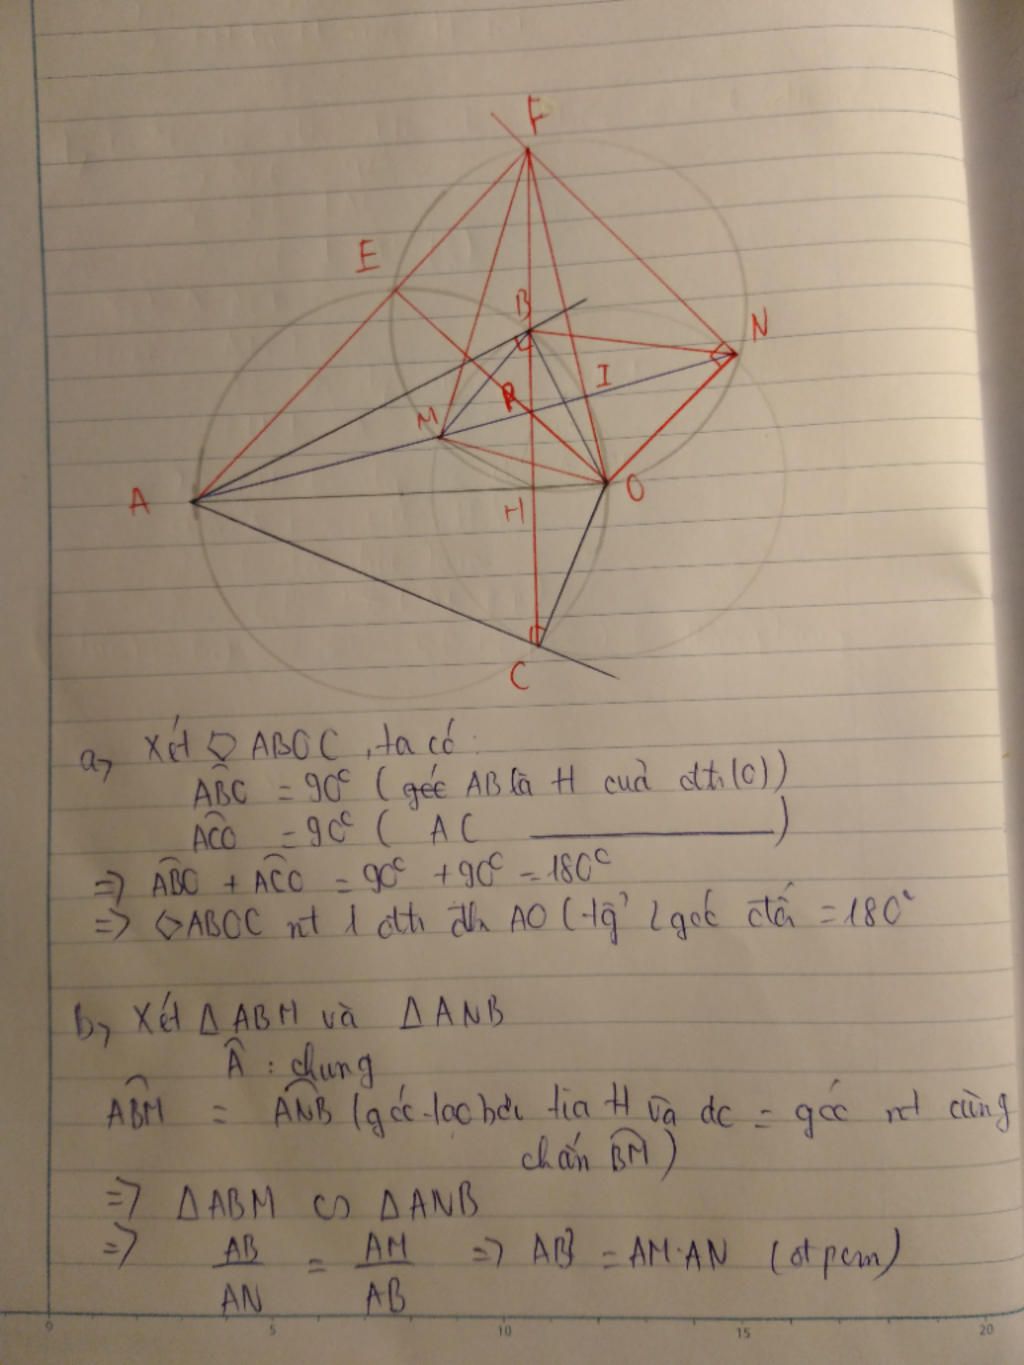 F
E
B
N
I
R
M
A
H
O
C
a, Xét ABOC, ta có:
ABC = 90° (góc AB là tt của đtr(O))
ACO = 90° ( AC ——————)
=> ABO + ACO = 90° + 90° = 180°
=> ABOC nt 1 đtr đk AO (tg 2 góc đối = 180°
b, Xét Δ ABM và Δ ANB
A : chung
ABM = ANB (góc tạo bởi tia tt và dc = góc nt cùng
chắn BM)
=> Δ ABM ∽ Δ ANB
=> AB/AN = AM/AB => AB² = AM.AN (đpcm)
0 5 10 15 20